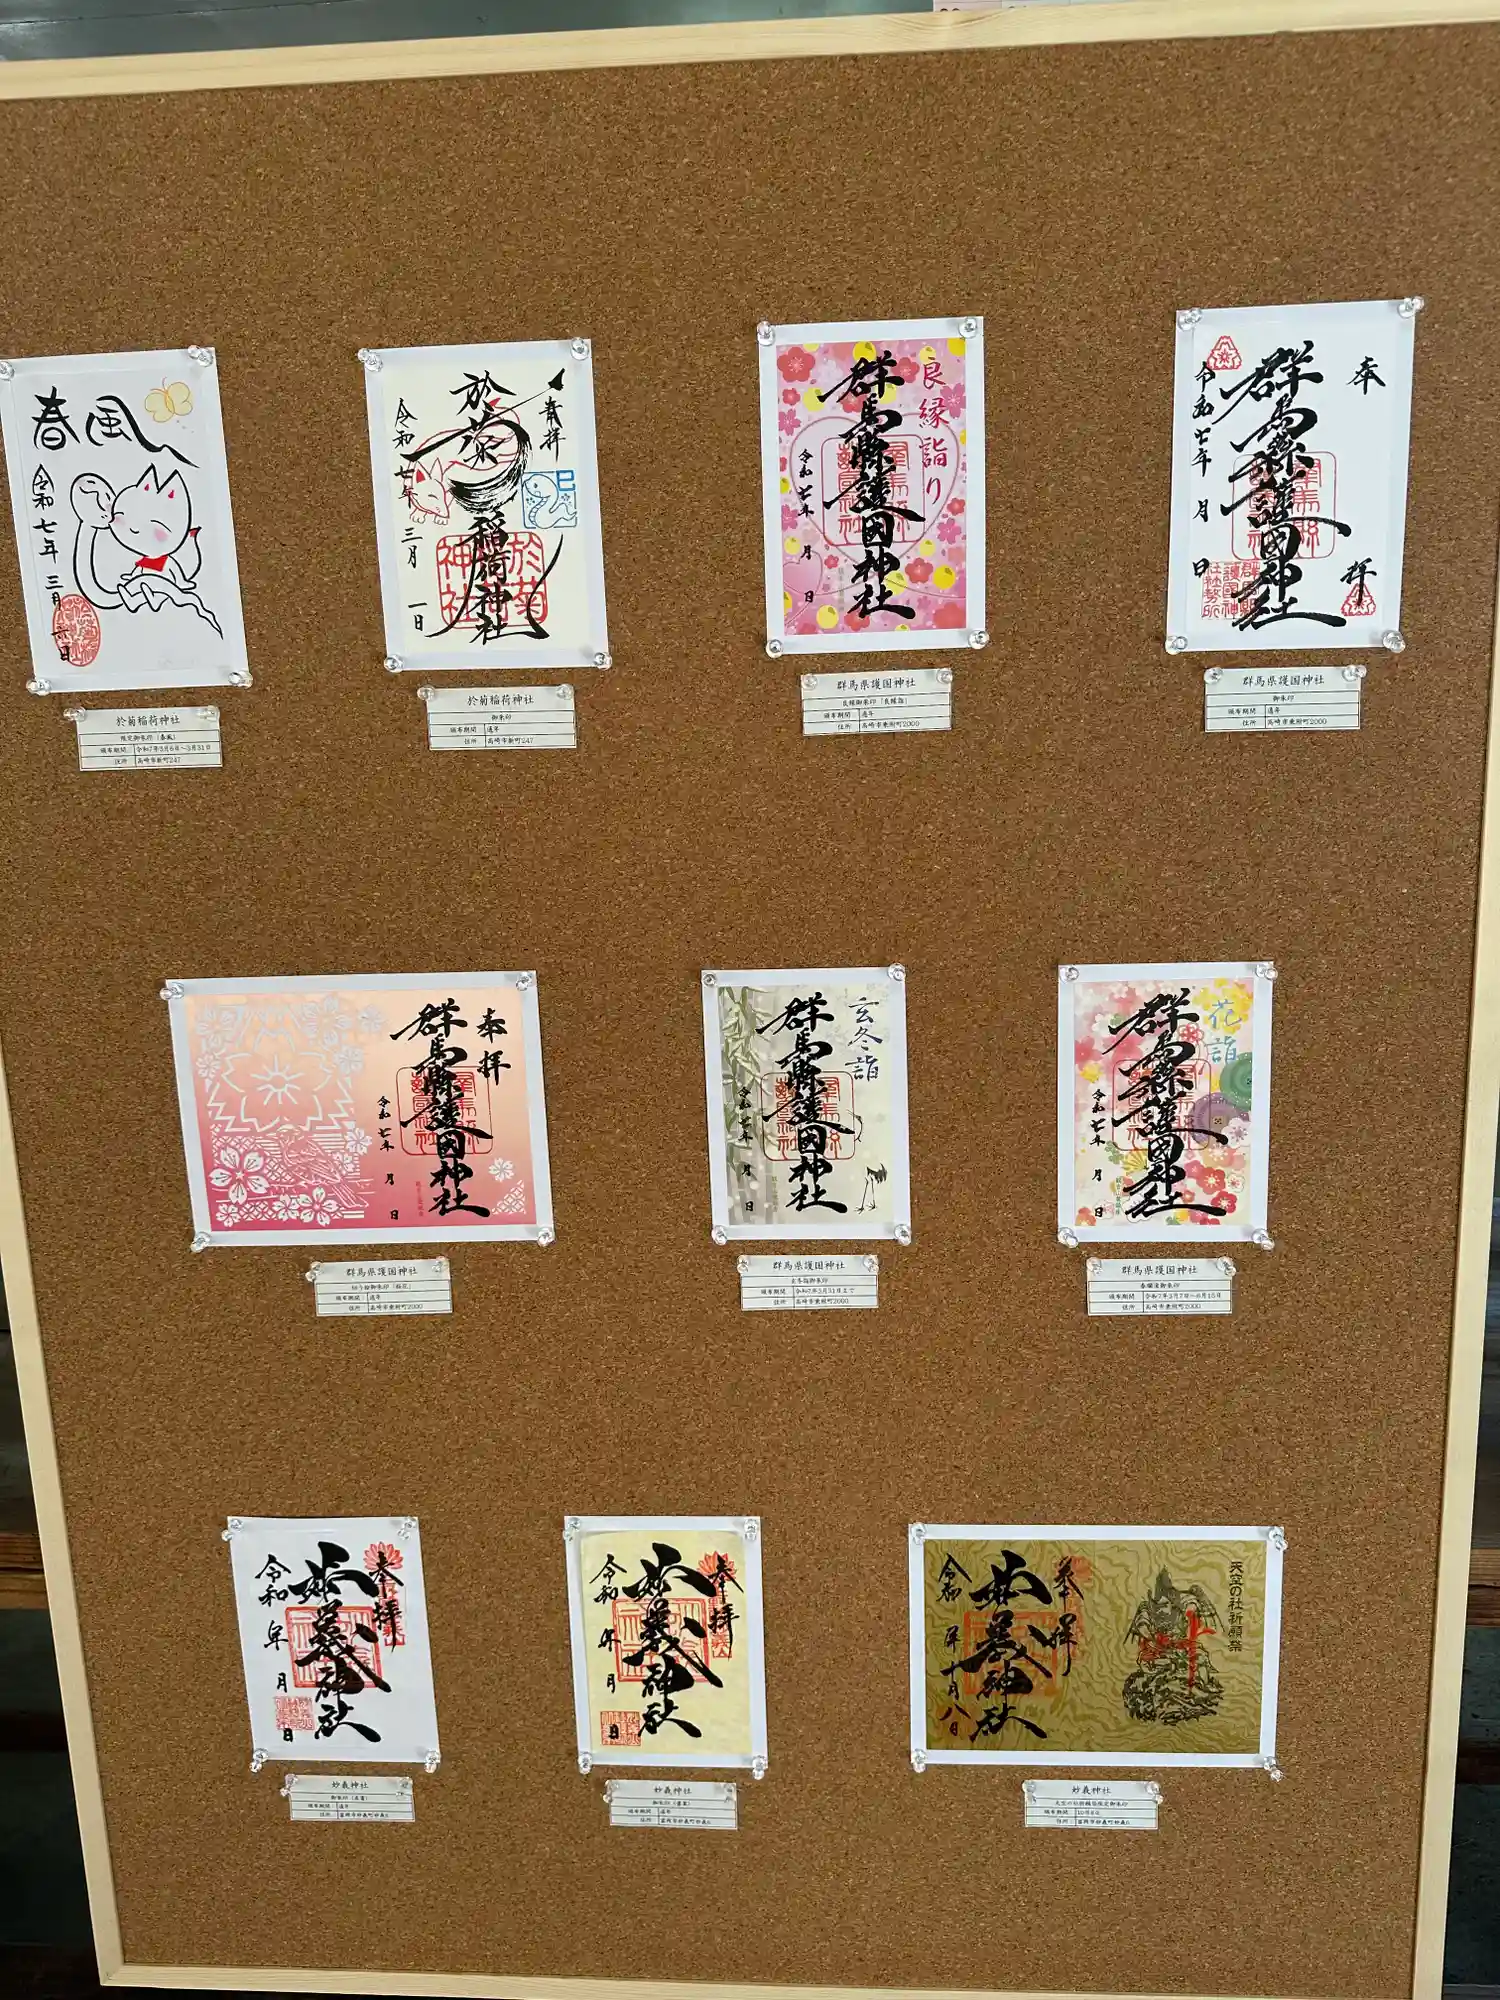 春風
令和七年三月六日
於菊稲荷神社
限定御朱印（春風）
頒布期間 令和7年3月6日～3月31日
住所 高崎市新町247
奉拝
於菊稲荷神社
令和七年三月一日
巳
於菊稲荷神社
御朱印
頒布期間 通年
住所 高崎市新町247
良縁詣り
群馬縣護国神社
令和七年 月 日
群馬県護国神社
良縁御朱印「良縁詣」
頒布期間 通年
住所 高崎市乗附町2000
奉拝
群馬縣護國神社
令和七年 月 日
群馬県護国神社
御朱印
頒布期間 通年
住所 高崎市乗附町2000
奉拝
群馬縣護国神社
令和七年 月 日
群馬県護国神社
切り絵御朱印「桜花」
頒布期間 通年
住所 高崎市乗附町2000
玄冬詣
群馬縣護国神社
令和七年 月 日
群馬県護国神社
玄冬詣御朱印
頒布期間 令和7年3月31日まで
住所 高崎市乗附町2000
花詣
群馬縣護國神社
令和七年 月 日
群馬県護国神社
頒布期間
住所 高崎市乗附町2000
奉拝
妙義神社
令和 年 月 日
妙義神社
頒布期間 通年
住所 富岡市妙義町妙義6
奉拝
妙義神社
令和 年 月 日
妙義神社
頒布期間 通年
住所 富岡市妙義町妙義6
天空の社祈願祭
奉拝
妙義神社
令和 年十月八日
妙義神社
天空の社祈願祭限定御朱印
頒布期間 10月8日
住所 富岡市妙義町妙義6